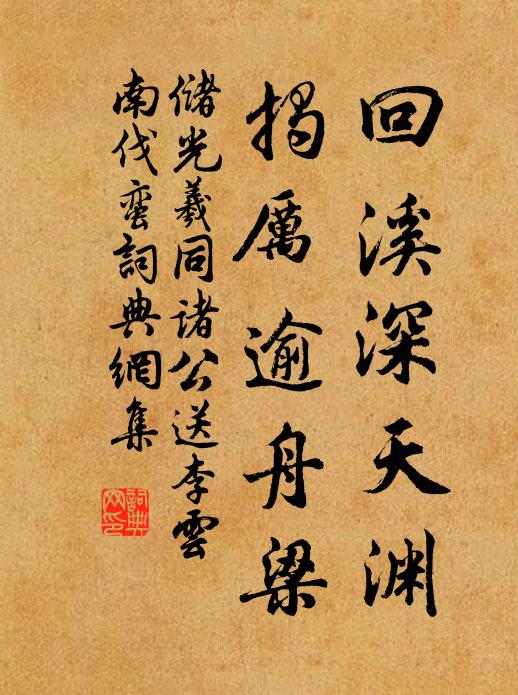 回溪深天渊
揭厲逾舟梁
儲光羲同諸公送李雲
南伐蠻詞典網集
詞典网印